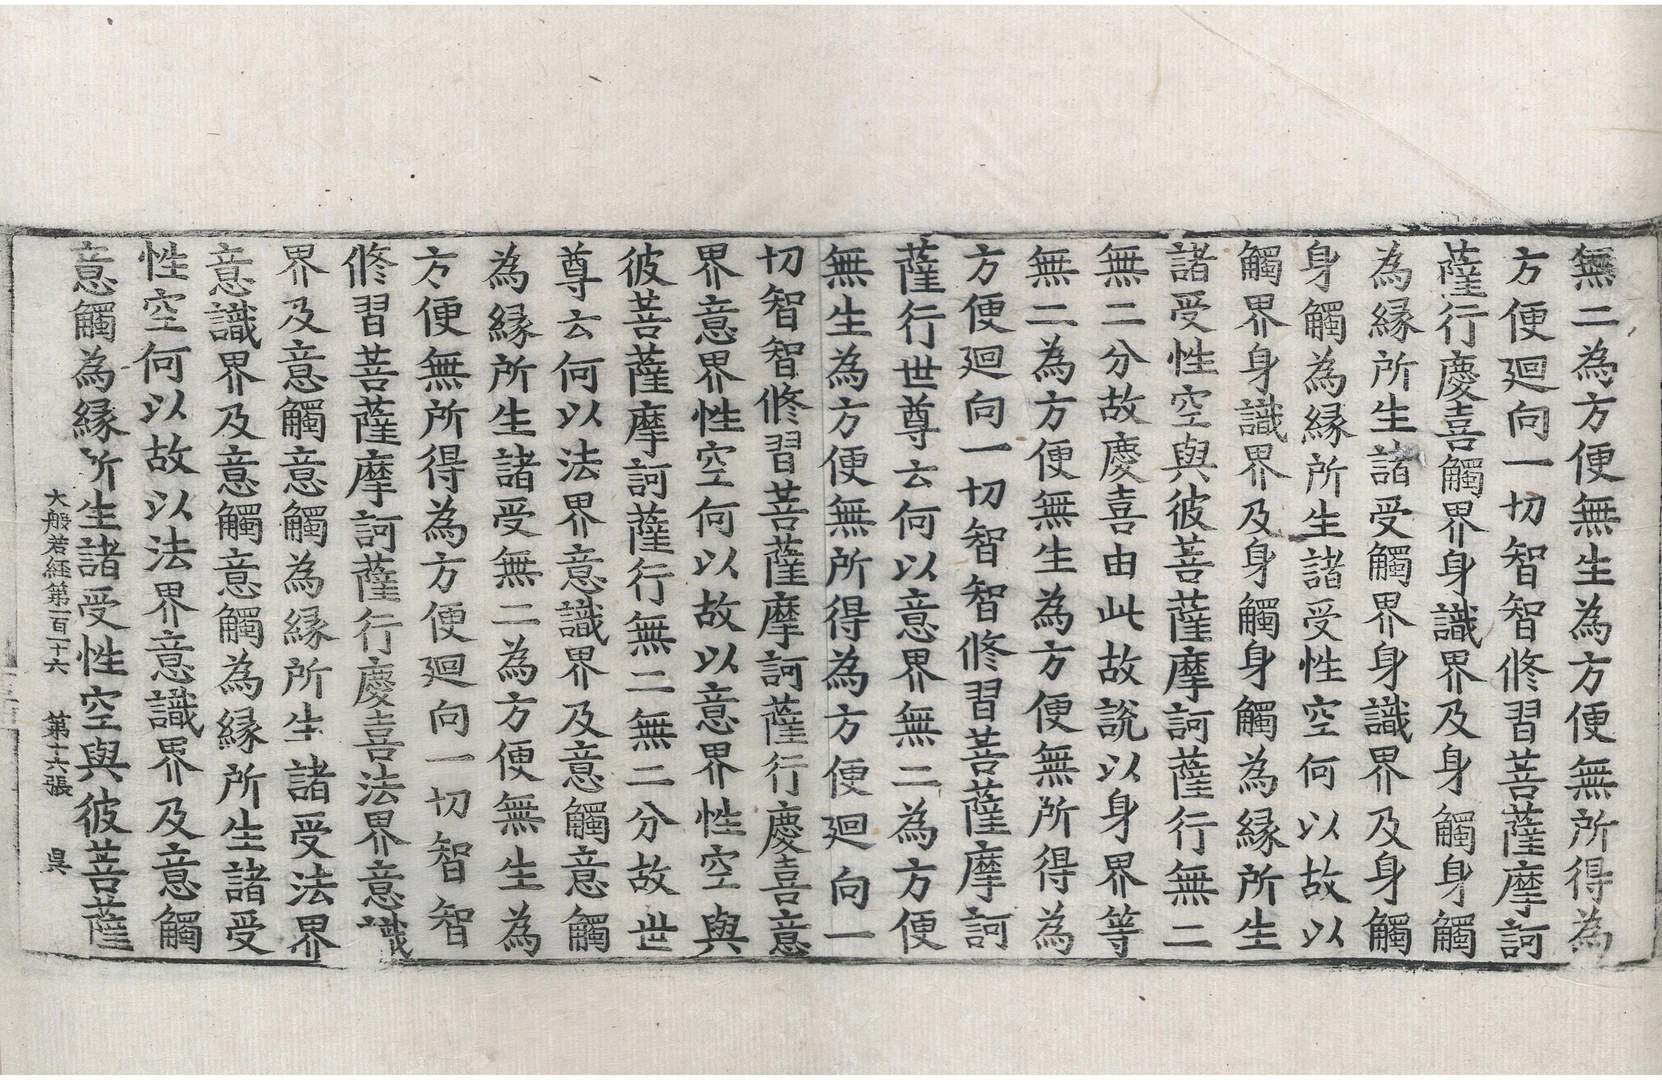 無二為方便無生為方便無所得為
方便迴向一切智智修習菩薩摩訶
薩行慶喜觸界身識界及身觸身觸
為緣所生諸受觸界身識界及身觸
身觸為緣所生諸受性空何以故以
觸界身識界及身觸身觸為緣所生
諸受性空與彼菩薩摩訶薩行無二
無二分故慶喜由此故說以身界等
無二為方便無生為方便無所得為
方便迴向一切智智修習菩薩摩訶
薩行世尊云何以意界無二為方便
無生為方便無所得為方便迴向一
切智智修習菩薩摩訶薩行慶喜意
界意界性空何以故以意界性空與
彼菩薩摩訶薩行無二無二分故世
尊云何以法界意識界及意觸意觸
為緣所生諸受無二為方便無生為
方便無所得為方便迴向一切智智
修習菩薩摩訶薩行慶喜法界意識
界及意觸意觸為緣所生諸受法界
意識界及意觸意觸為緣所生諸受
性空何以故以法界意識界及意觸
意觸為緣所生諸受性空與彼菩薩
大般若経第一百一十六 第十六張 吳